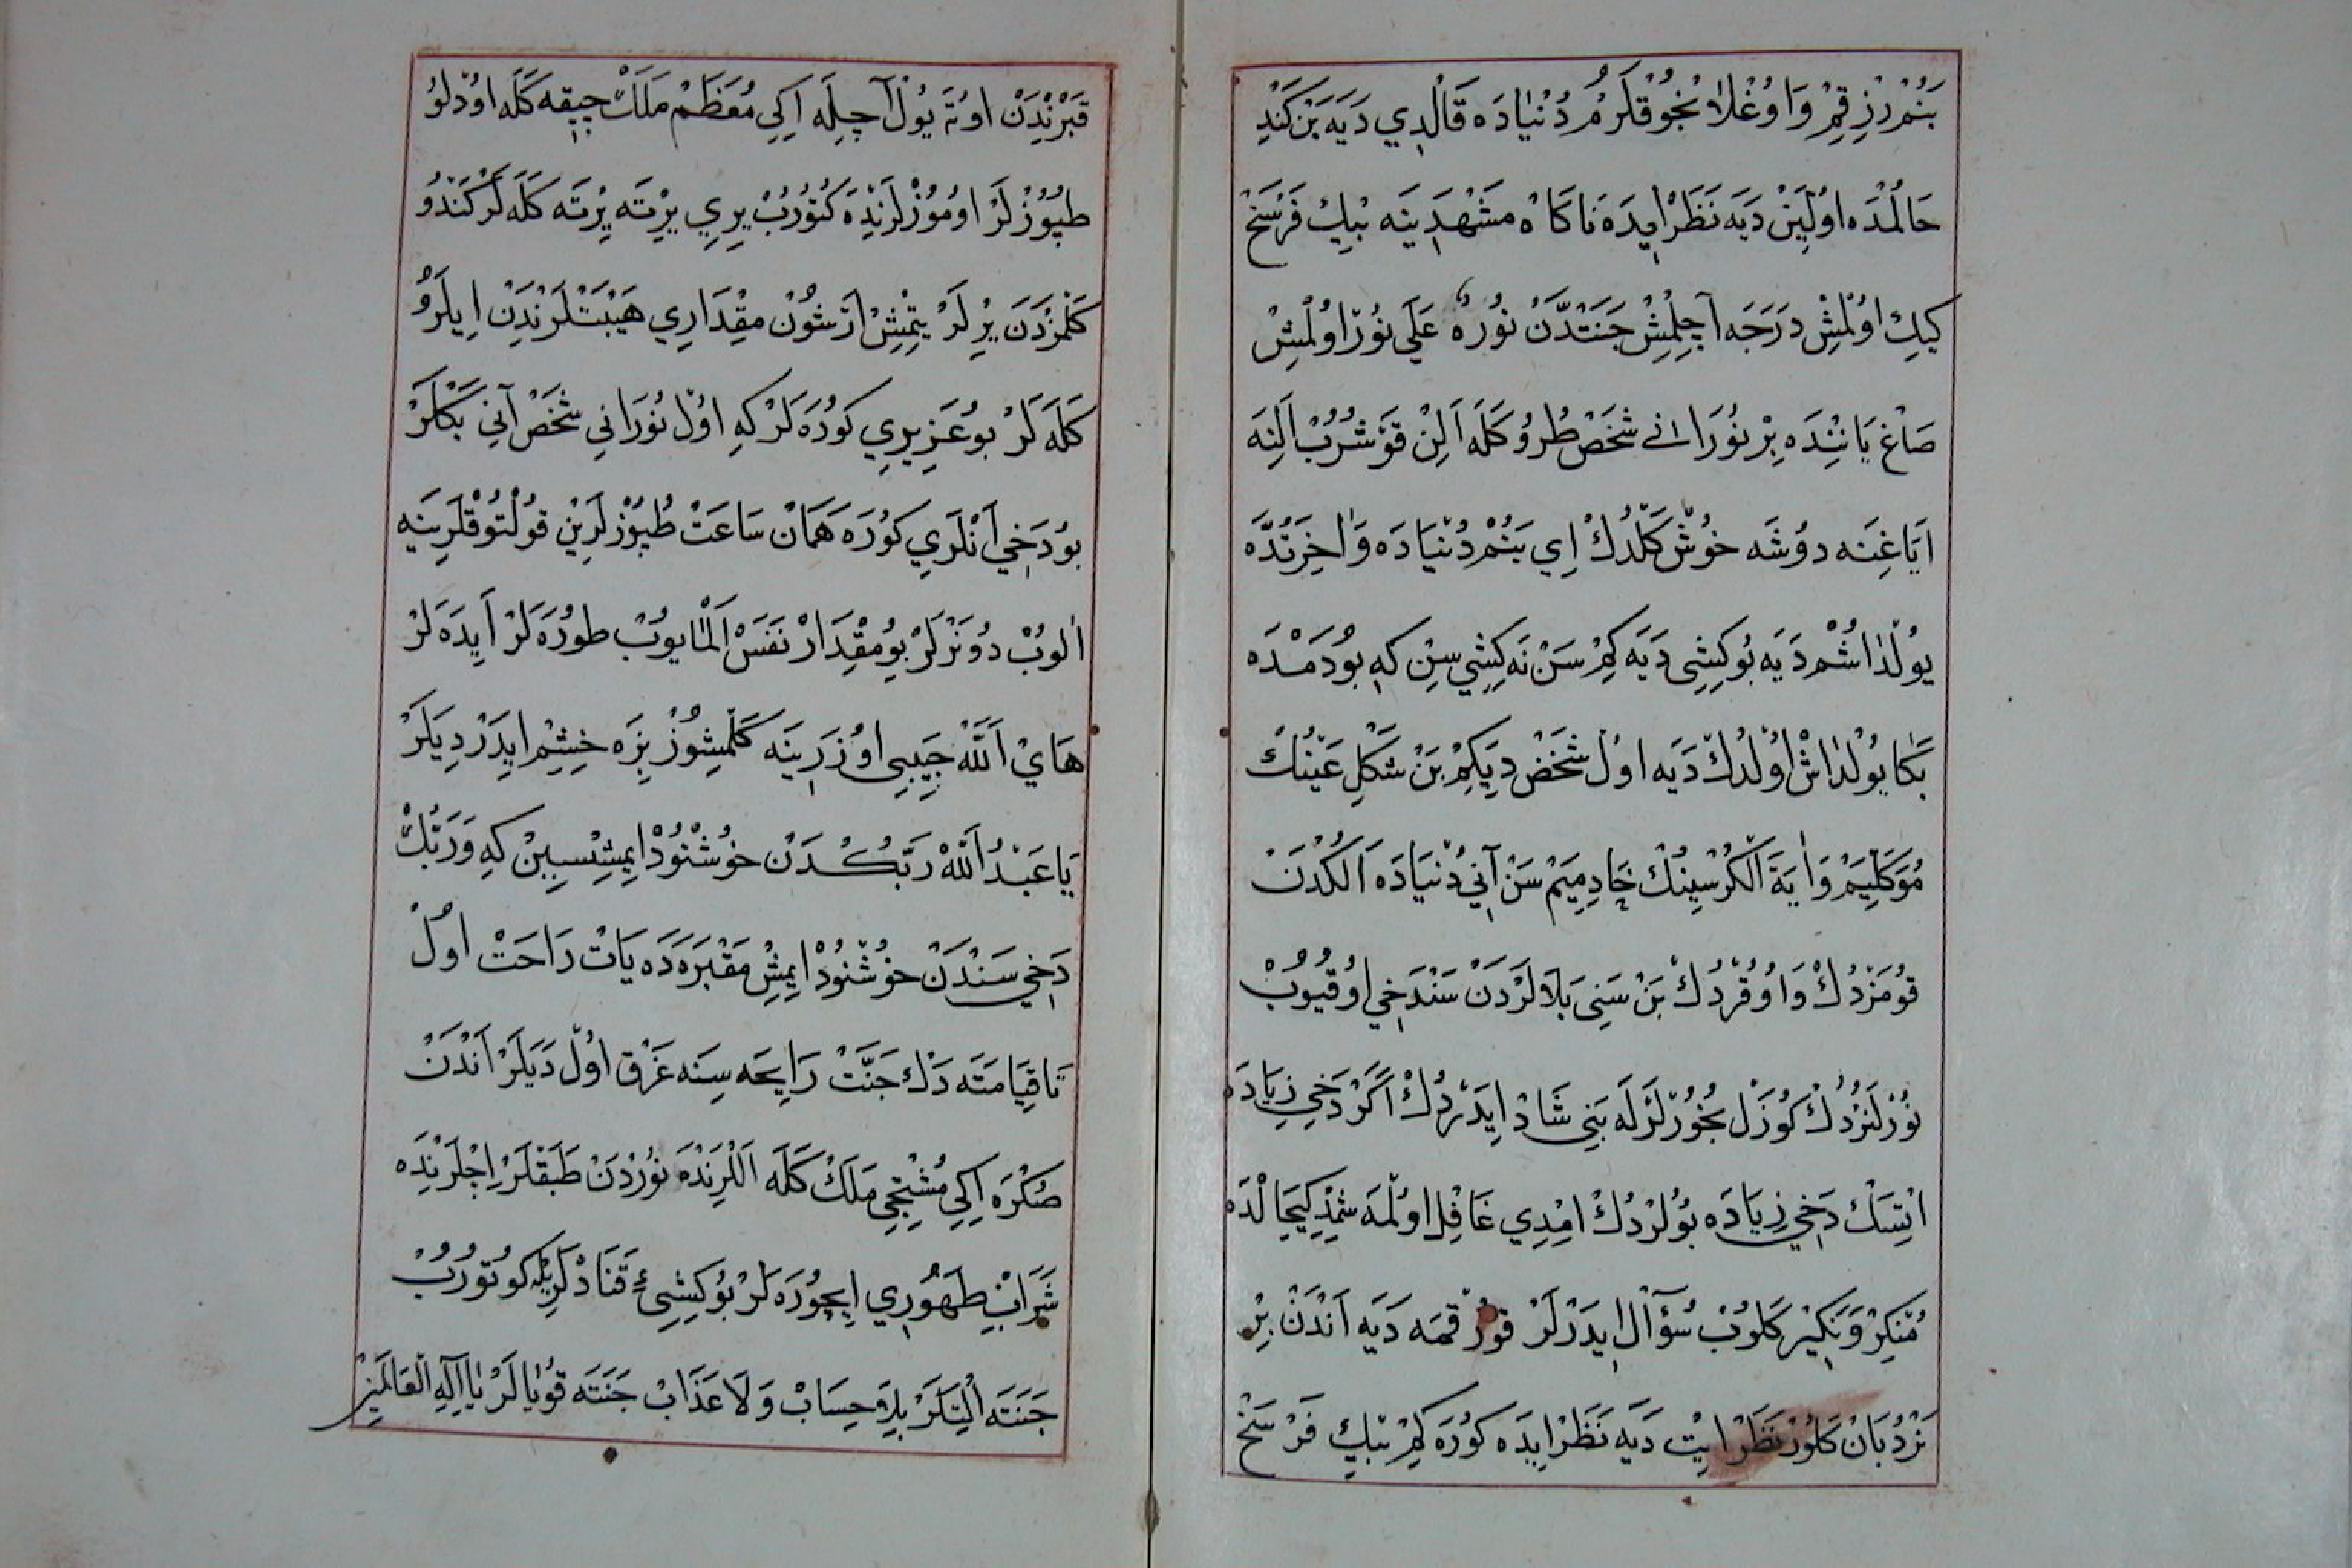 بَنُمْ رِزِقِمْ وَاوُغْلَانْجُوُقْلَرُمْ دُنْيَادَه قَالْدِي دَيَه بَنْ كَنْدِ
حَالُمْدَه اوُلَيِنْ دَيَه نَظَرْ ايِدَه نَاكَاه مَشْهَدِينَه بْيِكْ فَرْسَخْ
كيِكِ اوُلْمِشْ دَرَجَه آچِلْمِشْ جَنَتْدَّنْ نُورٌ عَلَي نُورْ اوُلْمِشْ
صَاغْ يَانِنْدَه بِرْ نُورَانِي شَخَصْ طُرُو كَلَه اَلِنْ قَوْشُرُبْ اَلِنَه
اَيَاغِنَه دوُشَه خوُشْ كَلْدُكْ اِي بَنُمْ دُنْيَادَه وَاخِرَتْدَه
يوُلْدَاشُمْ دَيَه بوُكِشِي دَيَه كِمْ سَنْ نَه كِشِي سِنْ كِه بوُدَمْدَه
بَكَا يوُلْدَاشْ اوُلْدُكْ دَيَه اوُلْ شَخَصْ دِيَكِمْ بَنْ شَكْلِ عَيْنُكْ
مُوَكَّلِيَمْ وَايَةَ الْكُرْسِينُكْ خَادِمِيَمْ سَنْ آنِي دُنْيَادَه اَلُكْدَنْ
قوُمَزْدُكْ وَاوُقُرْدُكْ بَنْ سَنِي بَلَالَرْدَنْ سَنْدَخِي اوُقُيوُبْ
نُورْلَنُرْدُكْ كوُزَلْ بُخُورْلَرْلَه بَنِي شَادْ ايِدَرْدُكْ اَكَرْ دَخِي زِيَادَه
اتِسَكْ دَخِي زِيَادَه بوُلُرْدُكْ امِْدِي غَافِلْ اوُلْمَه شِمْدِكِيحَالْدَه
مُنْكِرْ وَنَكِيرْ كَلوُبْ سُؤَالْ ايِدَرْلَرْ قوُرْقمَه دَيَه اَنْدَنْ بِرْ
نَرْدُبَانْ كَلوُرْ نَظَرْ ايِتْ دَيَه نَظَرْ ايِدَه كوُرَه كِمْ بْيِكْ فَرْسَخْ
قَبْرنْدِنْ اوُتَه يوُلْ آچِلَه اِكِي مُعَظَمْ مَلَكْ چِيقَه كَلَه اوُدْلُو
طپوُزْلَرْ اوُموُزْلَرنْدَه كَتوُرُبْ يِرِي يِرْتَه يِرْتَه كَلَه لَرْ كَنْدوُ
كَلْمَزْدَنَ يِرْلَرْ يِتْمِشْ اَرْشوُنْ مِقْدَارِي هَيْبَتْلَرنْدَنْ اِيلَرُو
كَلَه لَرْ بوُعَزِيزِي كوُرَه لَرْكِه اوُلْ نُورَانِي شَخَصْ آنِي بَكْلَرْ
بوُدَخِي اَنْلَرِي كوُرَه هَمَانْ سَاعَتْ طُپوُزْلَرِينْ قوُلْتوُقْلَرِينَه
الوُبْ دوُنَرْلَرْ بوُمِقْدَارْ نَفَسْ اَلْمَايوُبْ طوُرَه لَرْ اَيِدَه لَرْ
هَايْ اَللّٰهْ حَبِيبِي اوُزَرِينَه كَلْمِشوُزْ بِزَه خِشِمْ ايِدَرْ دِيَلَرْ
يَاعَبْدُ اَللّٰهْ رَبُّكْدَنْ خوُشْنوُدْ ايِمِشْسِينْ كِه وَرَبُّكْ
دَخِي سَنْدَنْ خوُشْنوُدْ ايِمِشْ مَقْبَرَه دَه يَاتْ رَاحَتْ اوُلْ
تَاقِيَامَتَه دَكْ جَنَّتْ رَايِحَه سِنَه غَرْق اوُلْ دَيَلَرْ اَنْدَنْ
صُكْرَه اِكِي مُشْتِجِي مَلَكْ كَلَه اَلْلَرِنْدَه نُورْدَنْ طَبَقْلَرْ اِچْلَرنْدَه
شَرَابِ طَهُورِي اِيچوُرَه لَرْ بوُكِشِيءِ قَنَادْلَرِيلَه كوُتوُرُبْ
جَنَتَه اَلْيتَلَرْ بِلَا حِسَابْ وَلَا عَذَابْ جَنَتَه قوُيَالَرْ يَا اِلَهِ الْعَالَمِينْ